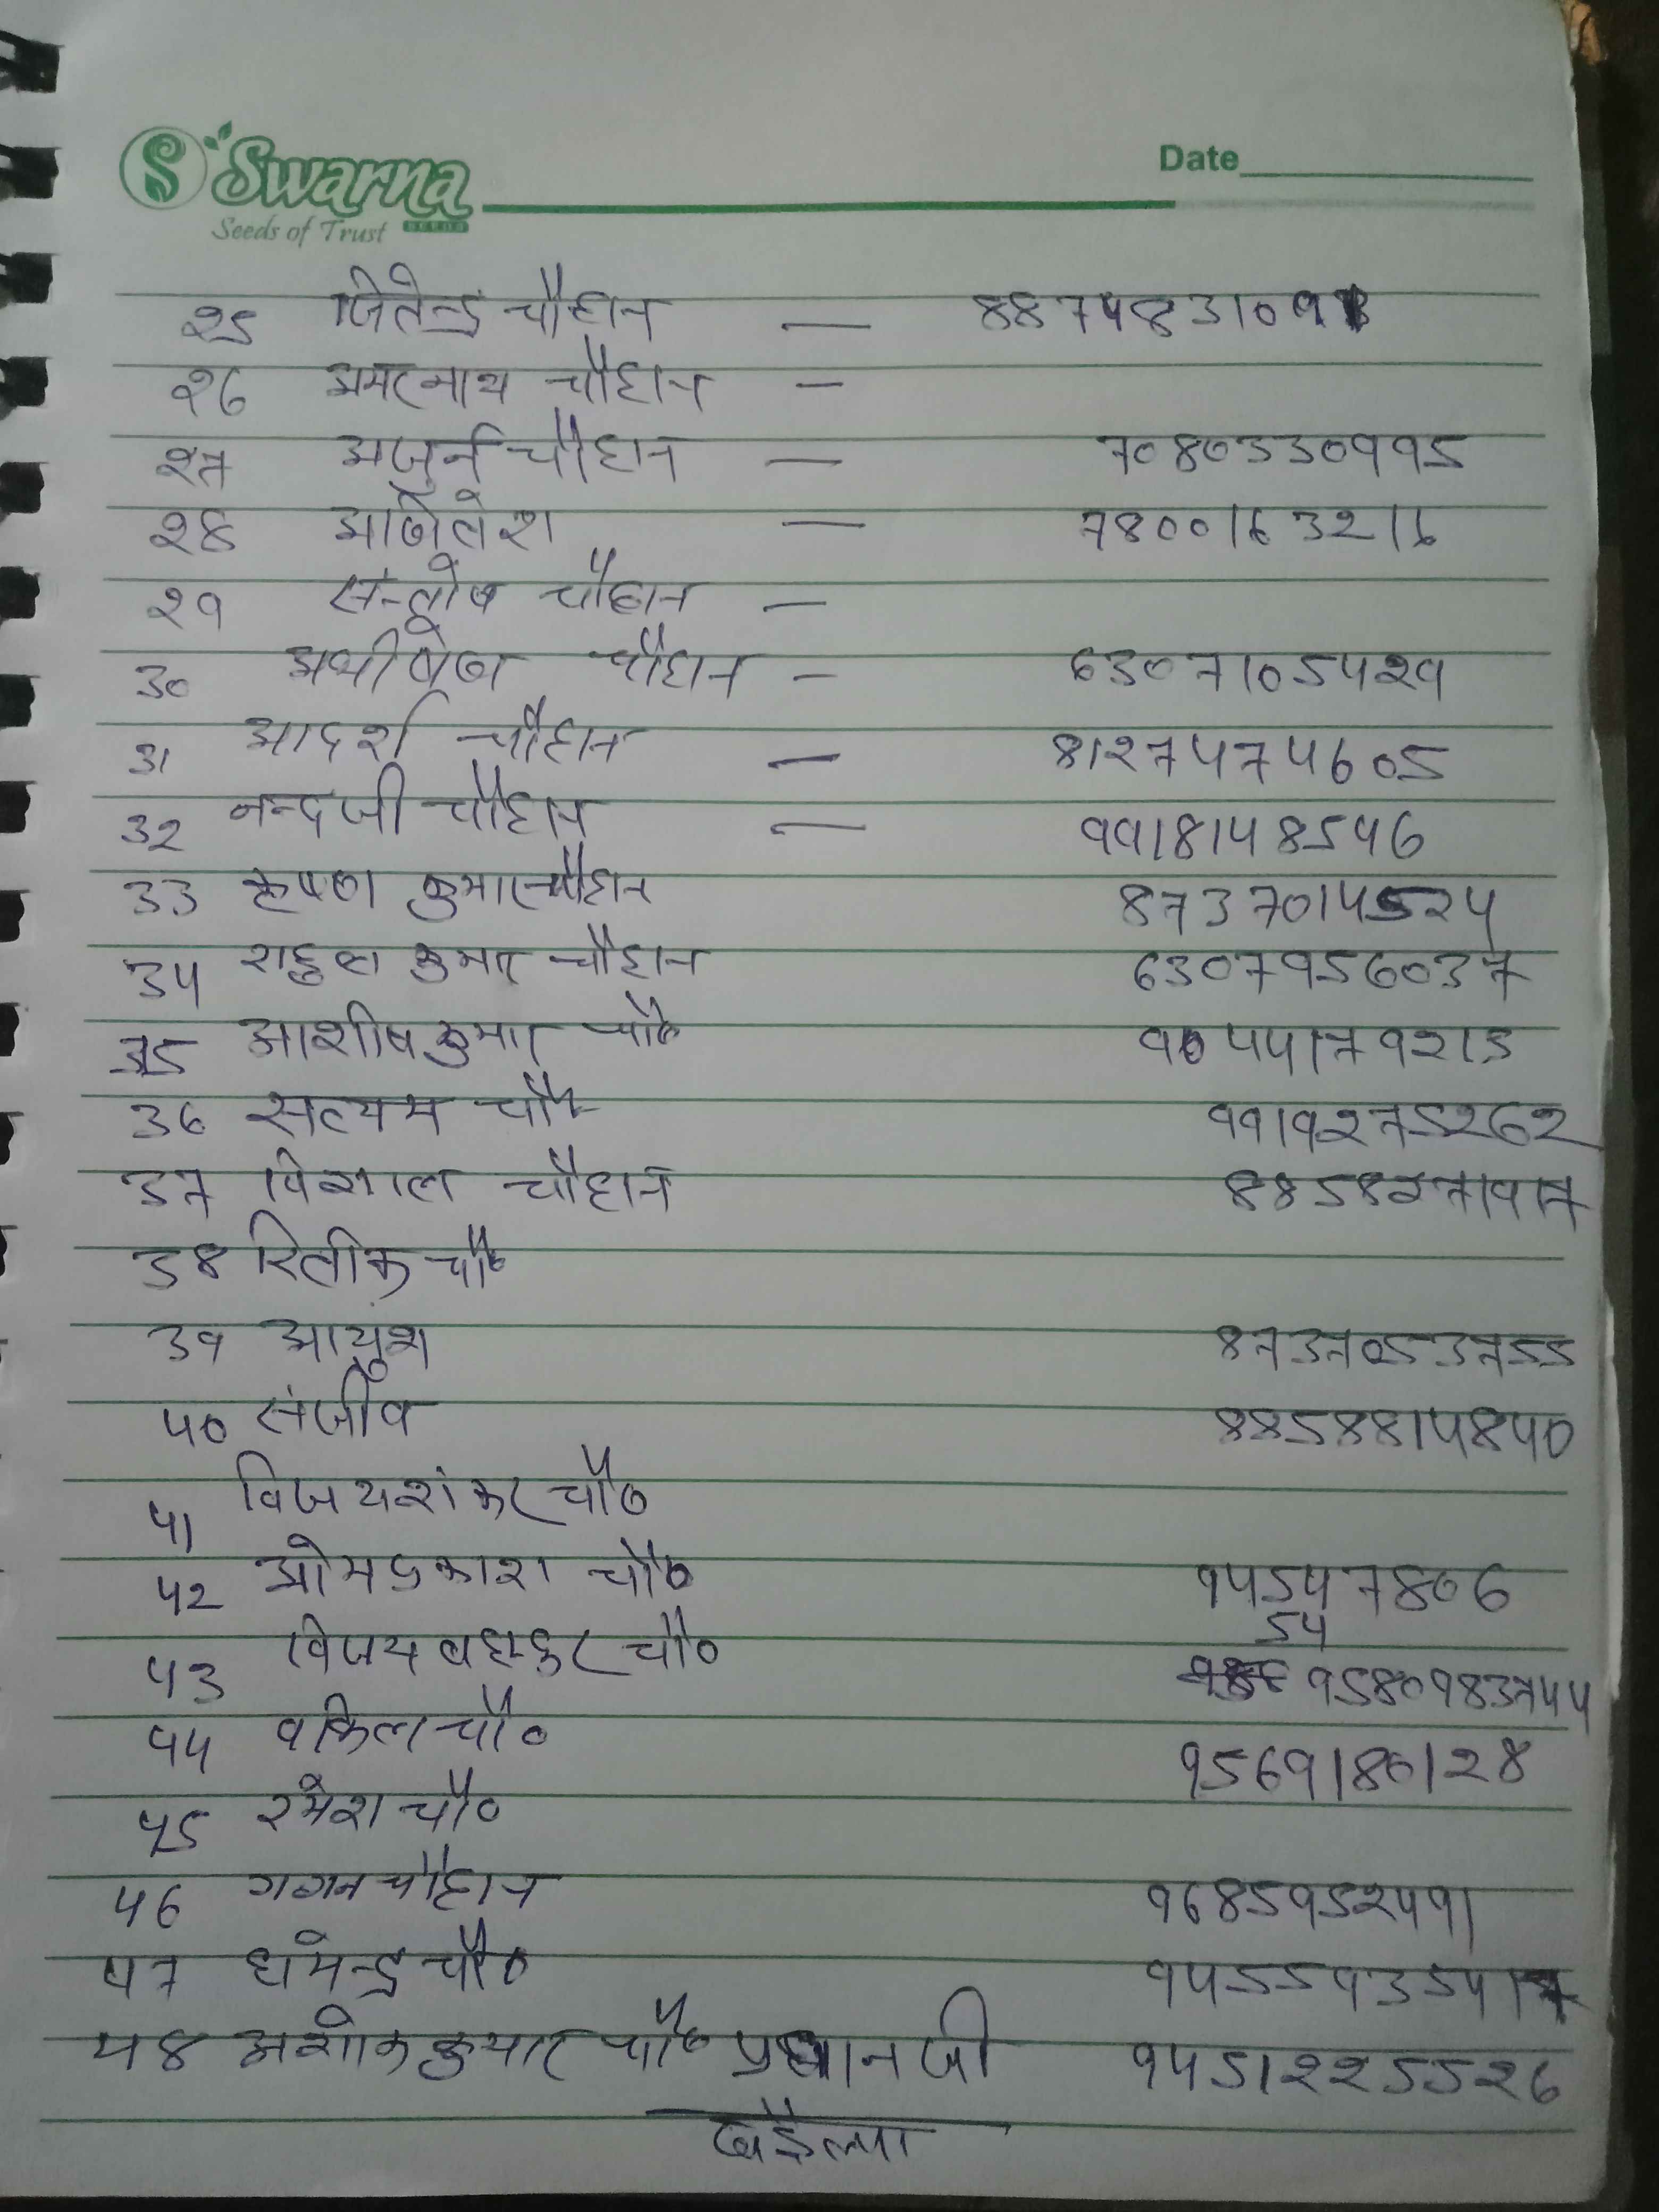 Swarna
Seeds of Trust SEEDS
Date
25 जितेन्द्र चौहान — 887483109
26 अमरनाथ चौहान —
27 अर्जुन चौहान — 7080330995
28 अखिलेश — 7800163216
29 सन्तोष चौहान —
30 अभीषेख चौहान — 6307105429
31 आदर्श चौहान — 8127474605
32 नन्दजी चौहान — 9918148546
33 कृष्णा कुमार चौहान 8737014524
34 राहुल कुमार चौहान 6307956037
35 आशीष कुमार चौ० 9044179213
36 सत्यम चौ० 9919275262
37 विशाल चौहान 8858271917
38 रितीक चौ०
39 आयुश 8737053755
40 संजीव 8858814840
41 विजय शंकर चौ०
42 ओमप्रकाश चौ० 94547806
54
43 विजय बहादुर चौ० 9580983744
44 वकिल चौ० 9569180128
45 रमेश चौ०
46 गगन चौहान 9685952491
47 धर्मेन्द्र चौ० 945593541
48 अशोक कुमार चौ० प्रधान जी 9451225526